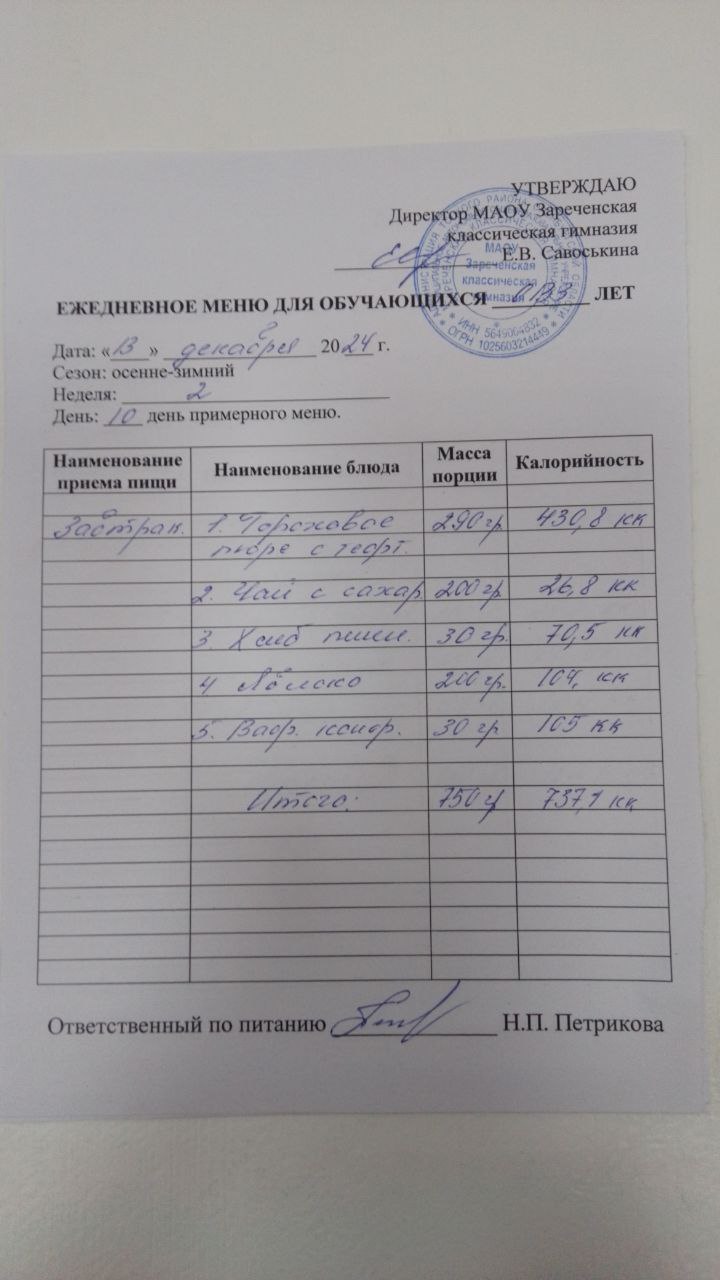 УТВЕРЖДАЮ
Директор МАОУ Зареченская
классическая гимназия
Е.В. Савоськина
МАОУ
Зареченская
классическая
гимназия
* ИНН 5649004832 *
* ОГРН 1025603214449 *
ЕЖЕДНЕВНОЕ МЕНЮ ДЛЯ ОБУЧАЮЩИХСЯ ЛЕТ
Дата: «13» декабря 2024 г.
Сезон: осенне-зимний
Неделя: 2
День: 10 день примерного меню.
Наименование приема пищи Наименование блюда Масса порции Калорийность
Завтрак. 1. Гороховое 290 гр 430,8 кк
пюре с тефт.
2. Чай с сахар. 200 гр. 26,8 кк
3. Хлеб пшен. 30 гр. 70,5 кк
4 Яблоко 200 гр. 104, кк
5. Ваф. конф. 30 гр 105 кк
Итого: 750 гр 737,1 кк
Ответственный по питанию Н.П. Петрикова